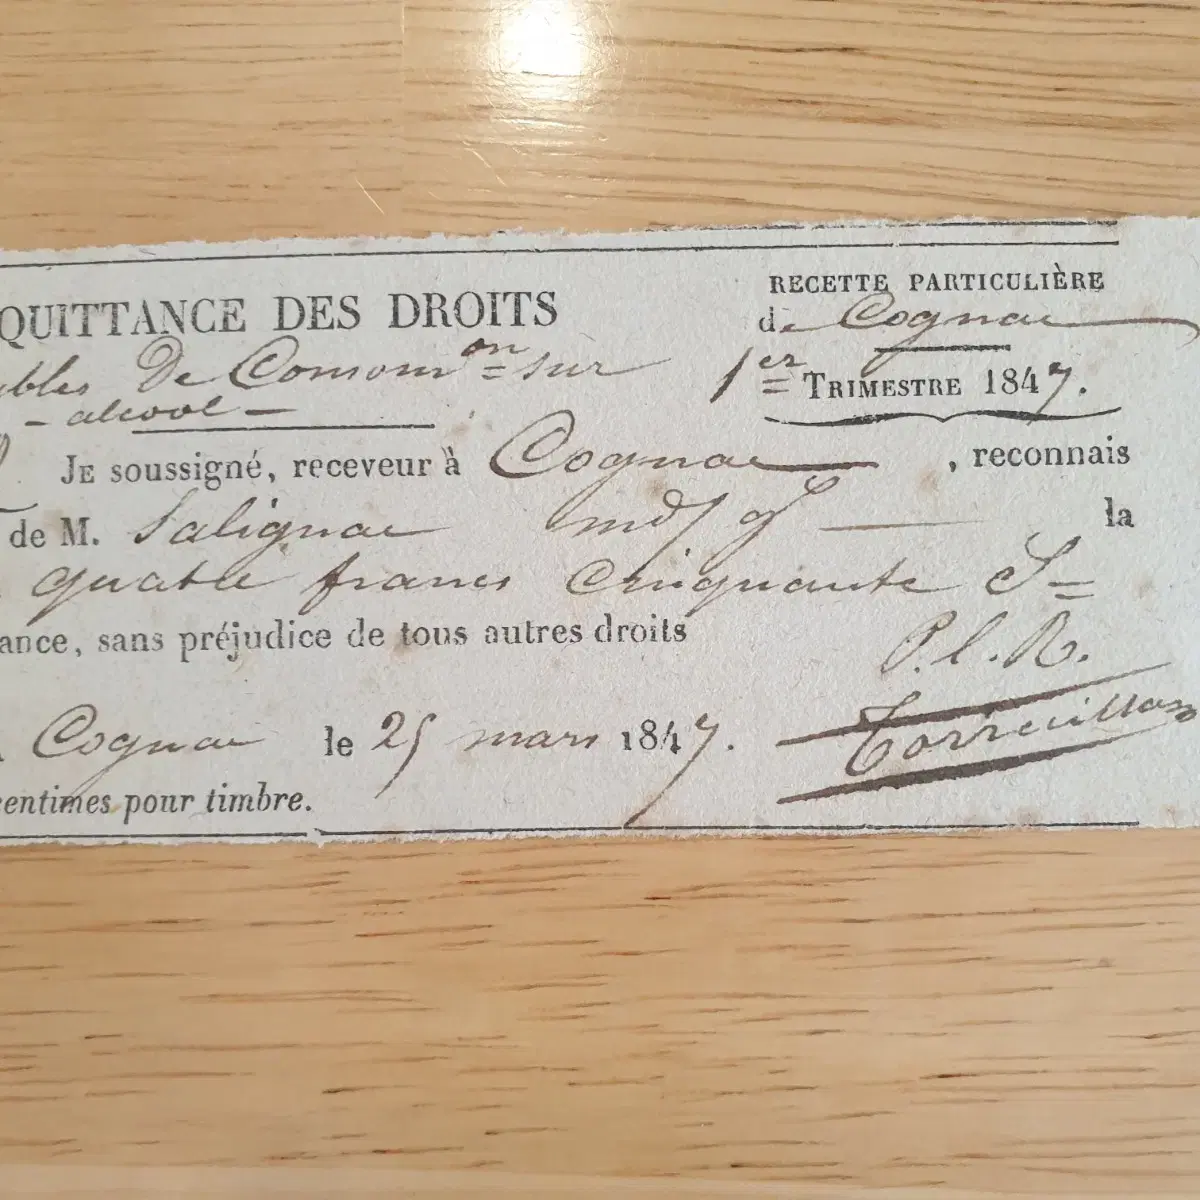 QUITTANCE DES DROITS
RECETTE PARTICULIÈRE
de Cognac
ubles De Consom^on sur
- alcool -
1er TRIMESTRE 1847.
JE soussigné, receveur à Cognac, reconnais
de M. Salignac la
quatre francs cinquante
ance, sans préjudice de tous autres droits
P. l. R.
Cognac le 25 mars 1847.
centimes pour timbre.